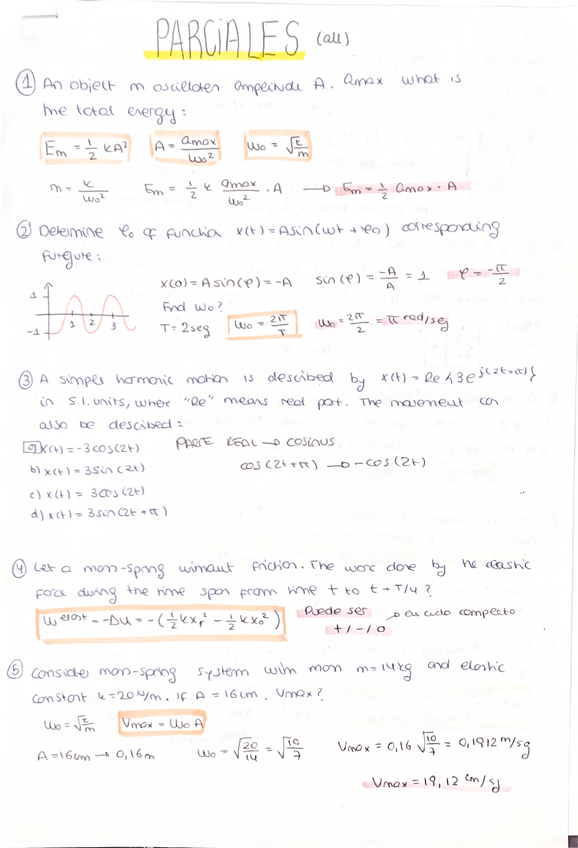 PARCIALES (all)
① An object m oscillates amplitude A. amax what is
the total energy:
Em = 1/2 kA² A = amax/ω0² ω0 = √k/m
m = k/ω0² Em = 1/2 k amax/ω0² · A → Em = 1/2 amax · A
② Determine φ0 of function x(t) = A sin(ωt + φ0) corresponding
furgure:
x(0) = A sin(φ) = -A sin(φ) = -A/A = 1 φ = -π/2
Find ω0?
T = 2seg ω0 = 2π/T ω0 = 2π/2 = π rad/seg
1
-1
1 2 3
③ A simple harmonic motion is described by x(t) = Re{3e^j(2t+π)}
in S.I. units, where "Re" means real part. The movement can
also be described:
a) x(t) = -3cos(2t) PARTE REAL → COSINUS
b) x(t) = 3sin(2t) cos(2t+π) → -cos(2t)
c) x(t) = 3cos(2t)
d) x(t) = 3sin(2t + π)
④ Let a mass-spring without friction. The work done by the elastic
force during the time span from time t to t + T/4?
W elast = -ΔU = -(1/2 kxF² - 1/2 kx0²) Puede ser → en ciclo completo
+/-/0
⑤ Consider mass-spring system with mass m=14kg and elastic
constant k=20N/m. If A = 16cm. Vmax?
ω0 = √k/m Vmax = ω0 A
A = 16cm → 0,16m ω0 = √20/14 = √10/7 Vmax = 0,16 √10/7 = 0,1912 m/sg
Vmax = 19,12 cm/sg